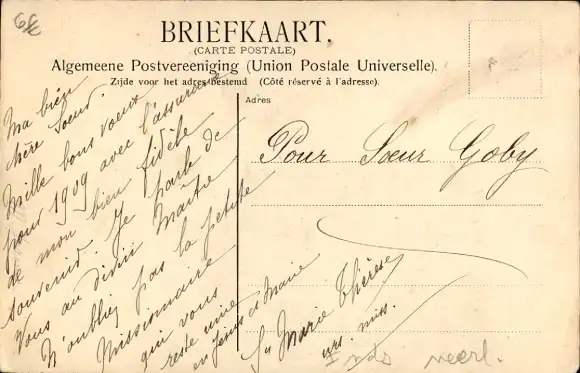 6E
BRIEFKAART.
(CARTE POSTALE)
Algemeene Postvereeniging (Union Postale Universelle).
Zijde voor het adres bestemd (Côté réservé à l'adresse).
Adres
Ma bien
chère Soeur.
Mille bons voeux
pour 1909 avec l'assurance
de mon bien fidèle
souvenir. Je parle de
Vous au divin Maître
N'oubliez pas la petite
Missionnaire
qui vous
reste unie
en Jésus et Marie
Sr Marie Thérèse
urs. miss.
Pour Soeur Goby
Indo neerl.